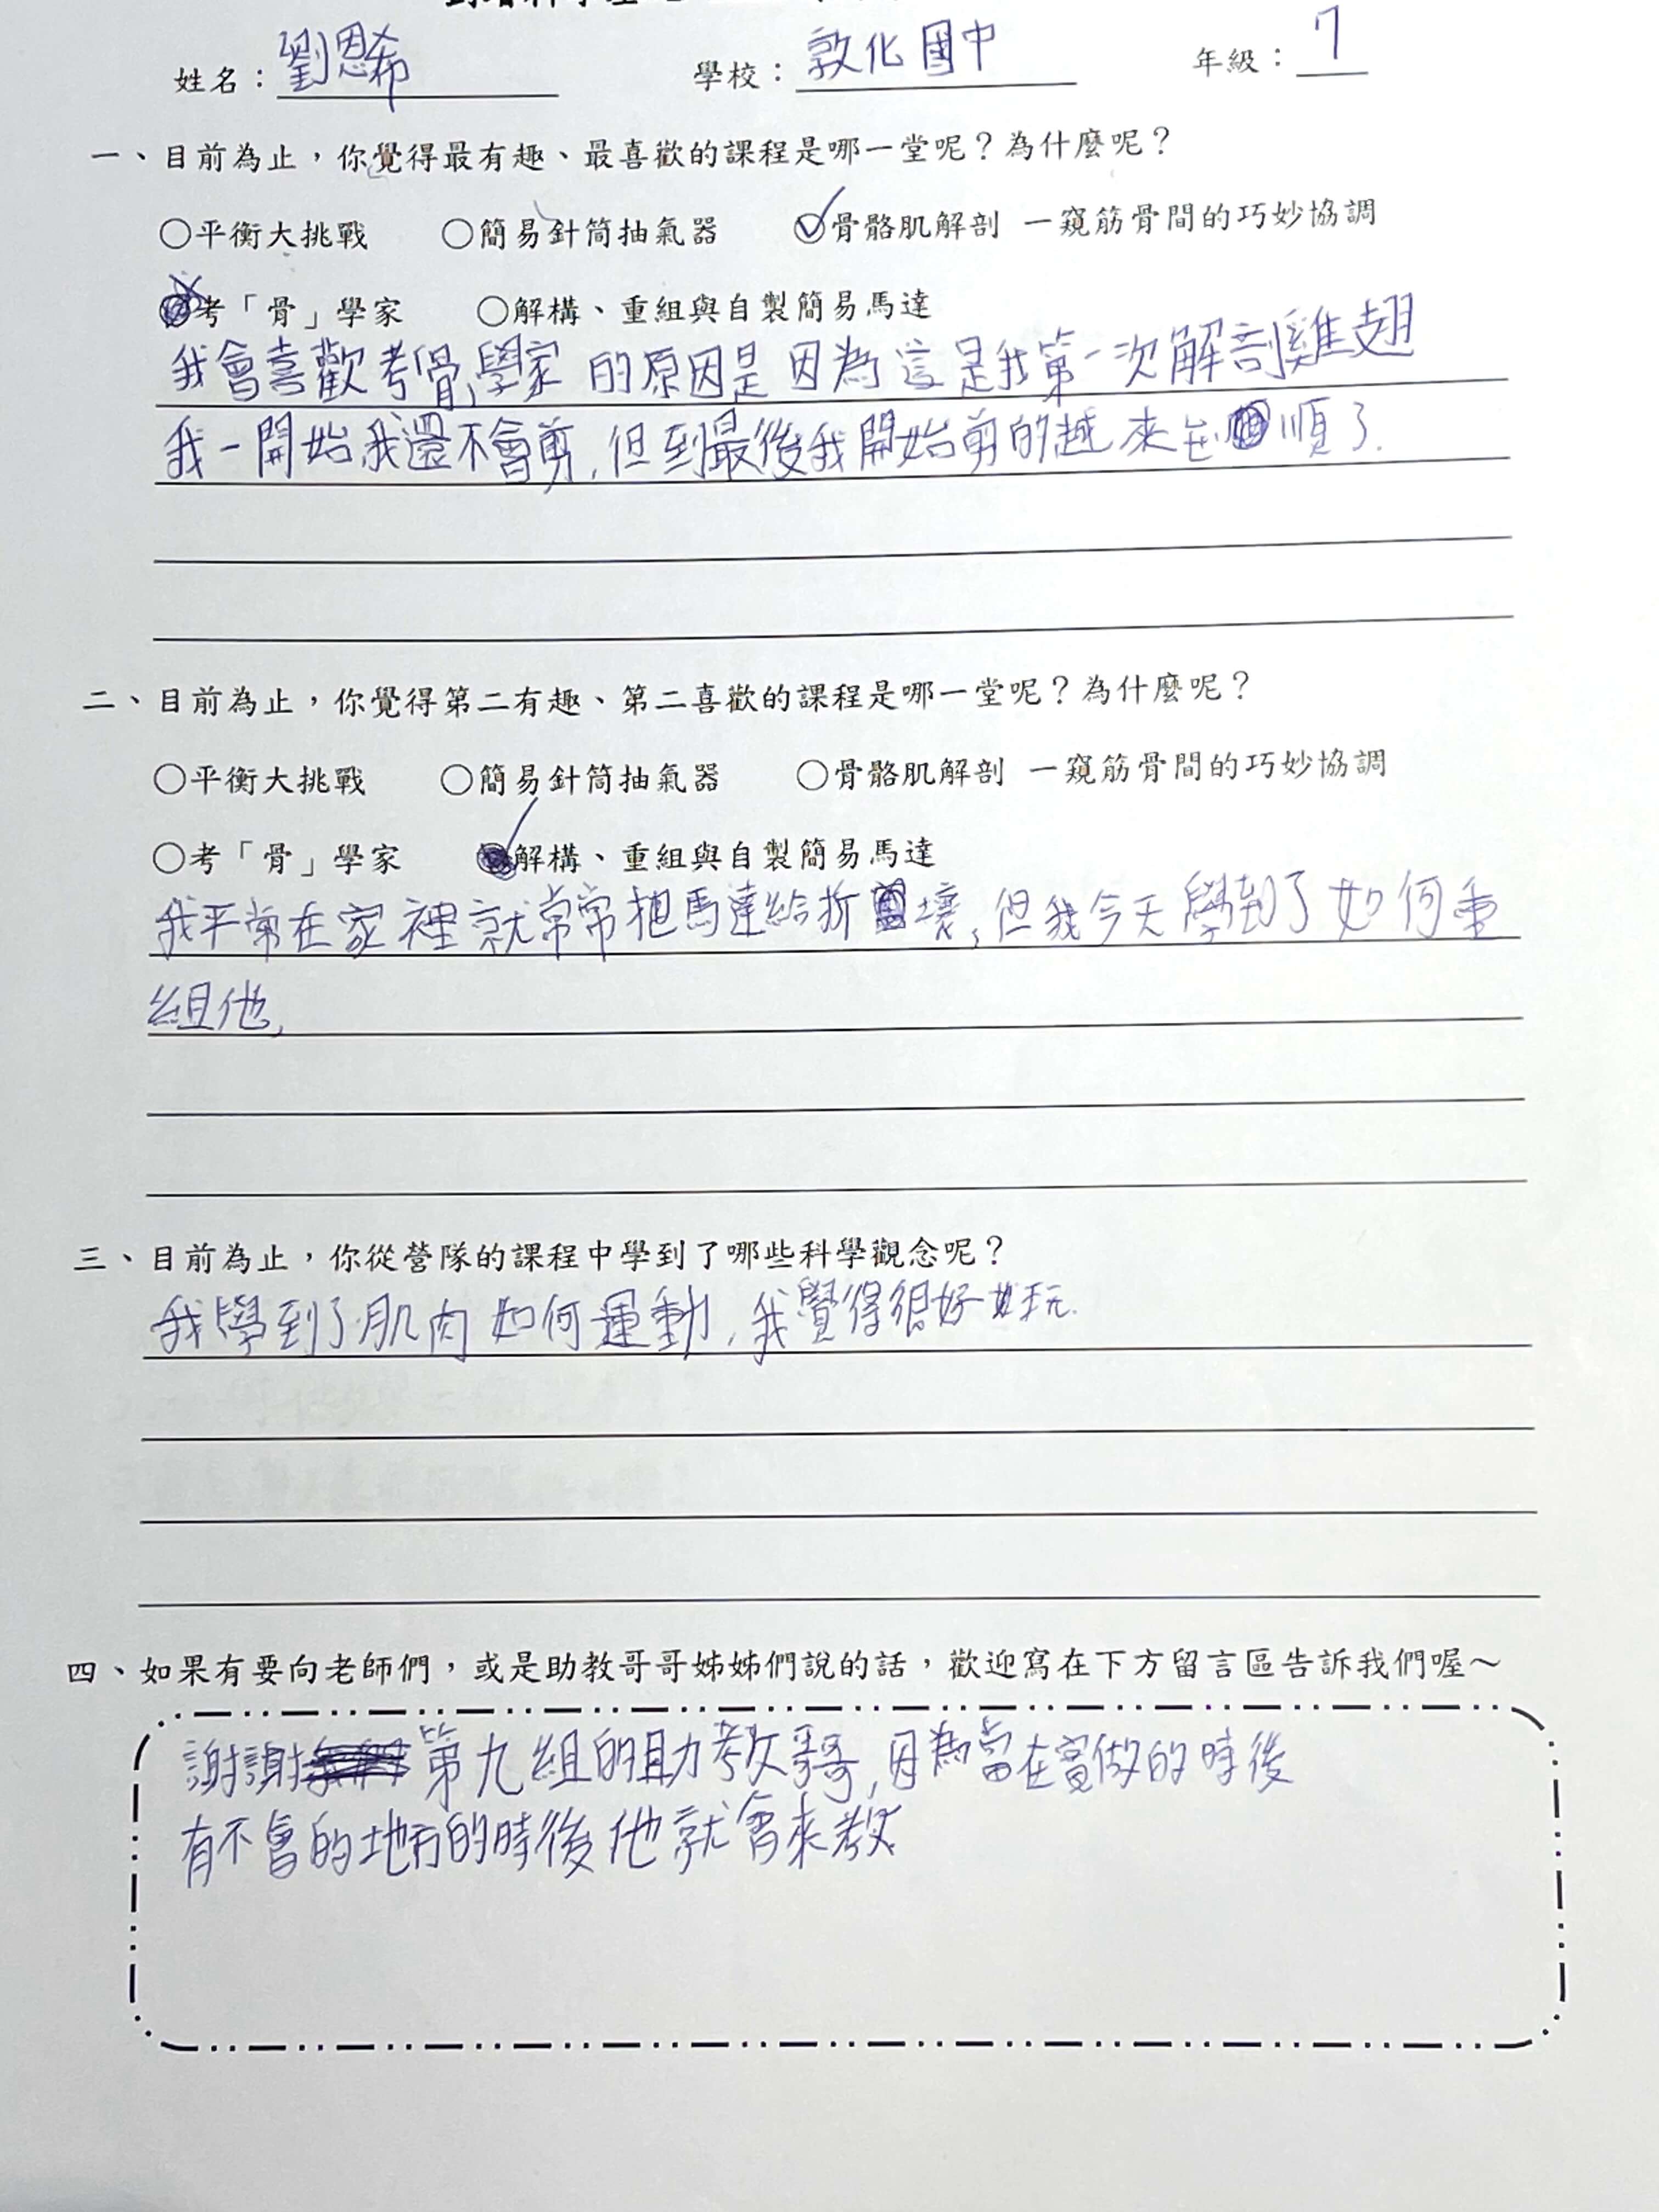 姓名：劉恩希 學校：敦化國中 年級：7
一、目前為止，你覺得最有趣、最喜歡的課程是哪一堂呢？為什麼呢？
○平衡大挑戰 ○簡易針筒抽氣器 ○骨骼肌解剖 －窺筋骨間的巧妙協調
考「骨」學家 ○解構、重組與自製簡易馬達
我會喜歡考骨學家的原因是因為這是我第一次解剖雞翅
我一開始我還不會剪,但到最後我開始剪的越來 順了.
二、目前為止，你覺得第二有趣、第二喜歡的課程是哪一堂呢？為什麼呢？
○平衡大挑戰 ○簡易針筒抽氣器 ○骨骼肌解剖 －窺筋骨間的巧妙協調
○考「骨」學家 解構、重組與自製簡易馬達
我平常在家裡就常常把馬達給折壞,但我今天學到了如何重
組他,
三、目前為止，你從營隊的課程中學到了哪些科學觀念呢？
我學到了肌肉如何運動,我覺得很好玩.
四、如果有要向老師們，或是助教哥哥姊姊們說的話，歡迎寫在下方留言區告訴我們喔～
謝謝第九組的助教哥哥,因為當在實做的時後
有不會的地方的時後他就會來教